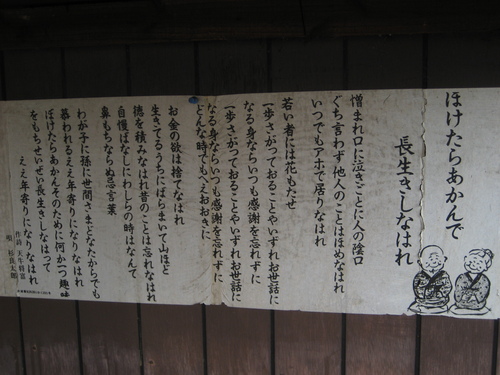 ぼけたらあかんで
長生きしなはれ
憎まれ口に泣きごとに人の陰口
ぐち言わず他人のことはほめなはれ
いつでもアホで居りなはれ
若い者には花もたせ
一歩さがっておることやいずれお世話に
なる身ならいつも感謝を忘れずに
一歩さがっておることやいずれお世話に
なる身ならいつも感謝を忘れずに
どんな時でもへえおおきに
お金の欲は捨てなはれ
生きてるうちにばらまいて山ほど
徳を積みなはれ昔のことは忘れなはれ
自慢ばなしにわしらの時はなんて
鼻もちならぬ忌言葉
わが子に孫に世間さまどなたからでも
慕われるええ年寄りになりなはれ
ぼけたらあかんそのために何か一つ趣味
をもちせいぜい長生きしなはって
ええ年寄りになりなはれ
作詩 天牛将富
唄 杉良太郎